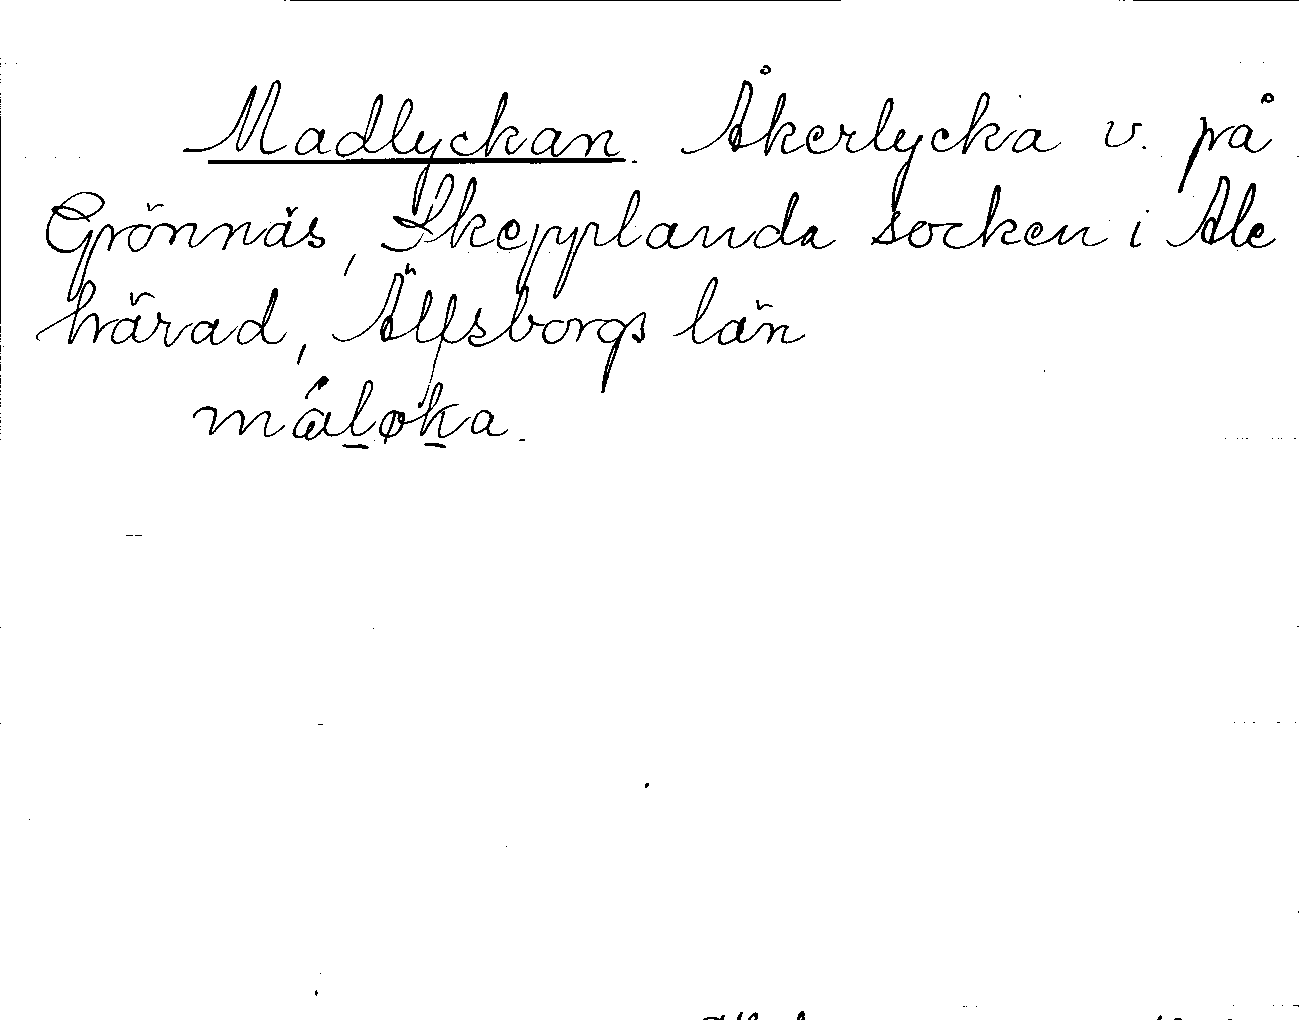 Madlyckan. Åkerlycka v. på
Grönnäs, Skepplanda socken i Ale
härad, Älfsborgs län
máløka.